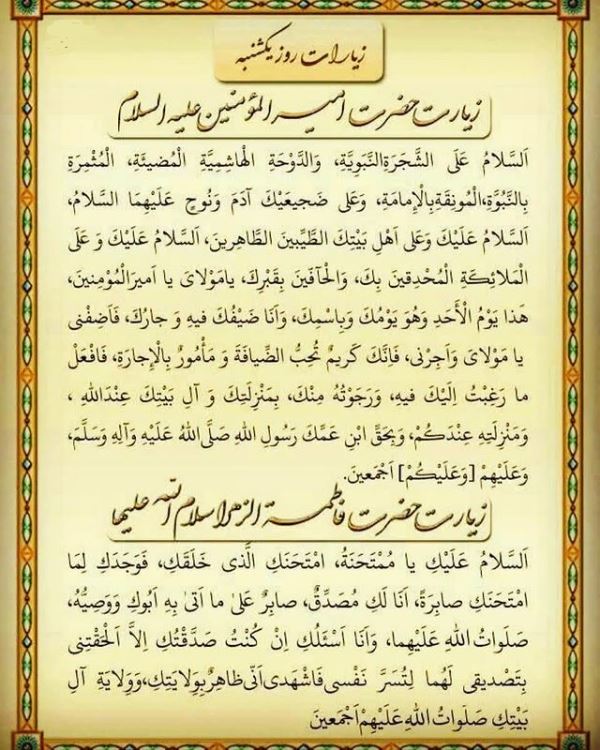 زیارات روز یکشنبه
زیارت حضرت امیرالمؤمنین علیه السلام
اَلسَّلامُ عَلَی الشَّجَرَةِالنَّبَوِیَّةِ، وَالدَّوْحَةِ الْهاشِمِیَّةِ الْمُضیئَةِ، الْمُثْمِرَةِ
بِالنُّبُوَّةِ،الْمُونِقَةِبِالْاِمامَةِ، وَعَلی ضَجیعَیْكَ آدَمَ وَنُوحٍ عَلَیْهِمَا السَّلامُ،
اَلسَّلامُ عَلَیْكَ وَعَلی اَهْلِ بَیْتِكَ الطَّیِّبینَ الطَّاهِرینَ، اَلسَّلامُ عَلَیْكَ وَ عَلَی
الْمَلائِكَةِ الْمُحْدِقینَ بِكَ، وَالْحآفّینَ بِقَبْرِكَ، یامَوْلایَ یا اَمیرَالْمُوْمِنینَ،
هَذا یَوْمُ الْاَحَدِ وَهُوَ یَوْمُكَ وَبِاسْمِكَ، وَاَنَا ضَیْفُكَ فیهِ وَ جارُكَ، فَاَضِفْنی
یا مَوْلایَ وَاَجِرْنی، فَاِنَّكَ كَریمٌ تُحِبُّ الضِّیافَةَ وَ مَأْمُورٌ بِالْاِجارَةِ، فَافْعَلْ
ما رَغِبْتُ اِلَیْكَ فیهِ، وَرَجَوْتُهُ مِنْكَ، بِمَنْزِلَتِكَ وَ آلِ بَیْتِكَ عِنْدَاللهِ ،
وَمَنْزِلَتِهِ عِنْدَكُمْ، وَبِحَقِّ ابْنِ عَمِّكَ رَسُولِ اللهِ صَلَّی اللهُ عَلَیْهِ وَآلِهِ وَسَلَّمَ،
وَعَلَیْهِمْ [وَعَلَیْكُمْ] اَجْمَعینَ.
زیارت حضرت فاطمة الزهرا سلام الله علیها
اَلسَّلامُ عَلَیْكِ یا مُمْتَحَنَةُ، امْتَحَنَكِ الَّذی خَلَقَكِ، فَوَجَدَكِ لِمَا
امْتَحَنَكِ صابِرَةً، اَنَا لَكِ مُصَدِّقٌ، صابِرٌ عَلیٰ ما اَتیٰ بِهِ اَبُوكِ وَوَصِیُّهُ،
صَلَواتُ اللهِ عَلَیْهِما، وَاَنَا اَسْئَلُكِ اِنْ كُنْتُ صَدَّقْتُكِ اِلاَّ اَلْحَقْتِنی
بِتَصْدیقی لَهُما لِتُسَرَّ نَفْسی فَاشْهَدی اَنّی ظاهِرٌبِوِلایَتِكِ،وَوِلایَةِ آلِ
بَیْتِكِ صَلَواتُ اللهِ عَلَیْهِمْ اَجْمَعینَ